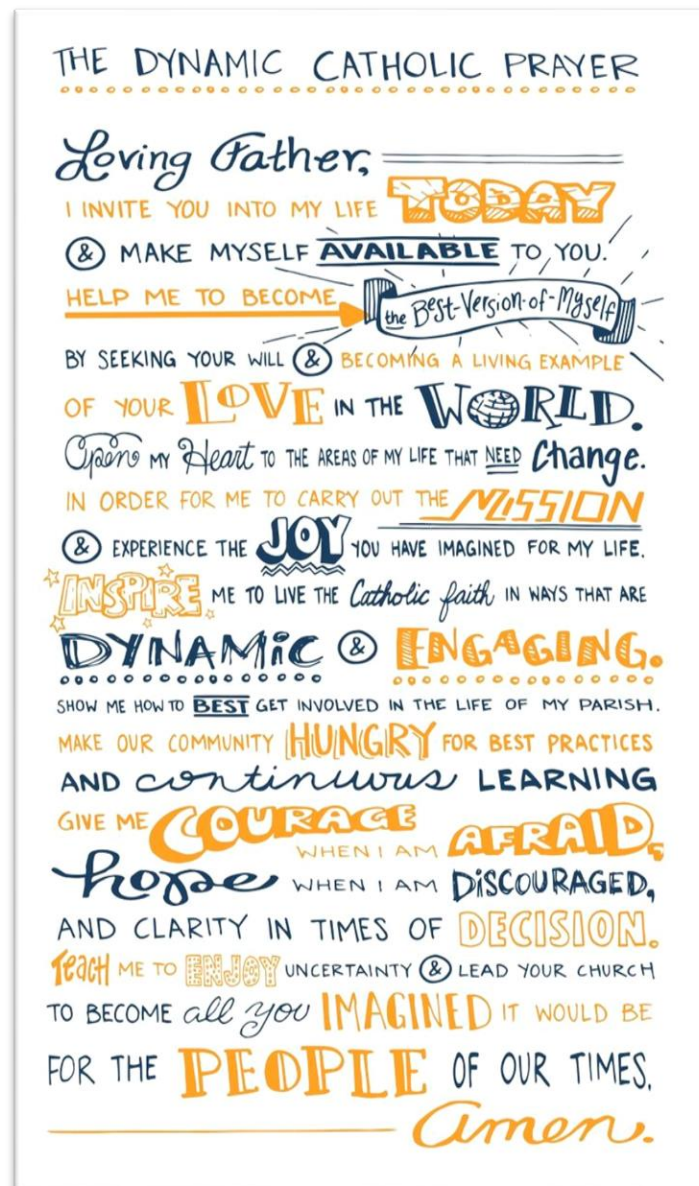 THE DYNAMIC CATHOLIC PRAYER
Loving Father,
I INVITE YOU INTO MY LIFE TODAY
& MAKE MYSELF AVAILABLE TO YOU.
HELP ME TO BECOME the Best-Version-of-Myself
BY SEEKING YOUR WILL & BECOMING A LIVING EXAMPLE
OF YOUR LOVE IN THE WORLD.
Open MY Heart TO THE AREAS OF MY LIFE THAT NEED Change.
IN ORDER FOR ME TO CARRY OUT THE MISSION
& EXPERIENCE THE JOY YOU HAVE IMAGINED FOR MY LIFE.
INSPIRE ME TO LIVE THE Catholic faith IN WAYS THAT ARE
DYNAMiC & ENGAGING.
SHOW ME HOW TO BEST GET INVOLVED IN THE LIFE OF MY PARISH.
MAKE OUR COMMUNITY HUNGRY FOR BEST PRACTICES
AND continuous LEARNING
GIVE ME COURAGE WHEN I AM AFRAID,
hope WHEN I AM DiSCOURAGED,
AND CLARITY IN TIMES OF DECISION.
TEACH ME TO ENJOY UNCERTAINTY & LEAD YOUR CHURCH
TO BECOME all you IMAGINED IT WOULD BE
FOR THE PEOPLE OF OUR TIMES.
amen.